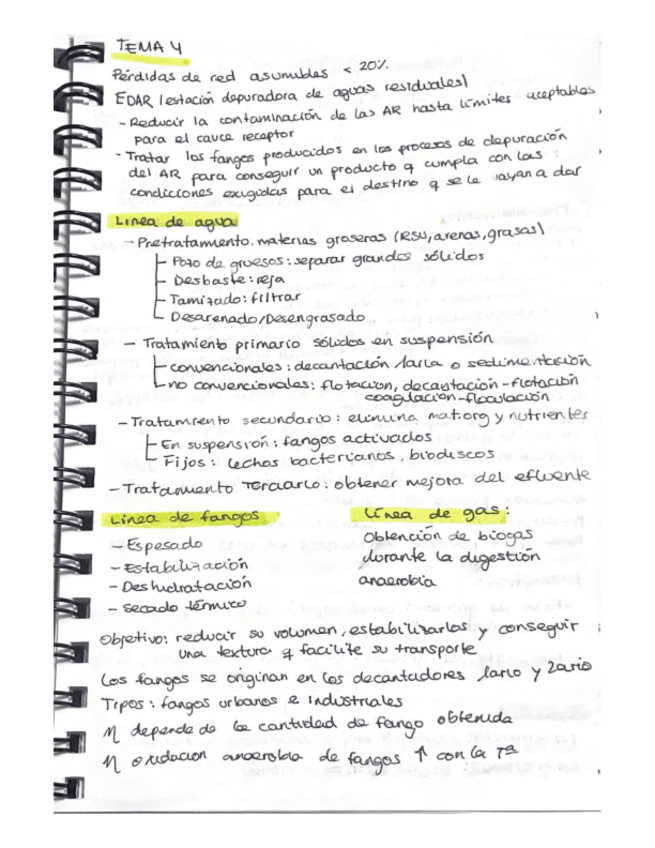 TEMA 4
Pérdidas de red asumibles < 20%
EDAR (estación depuradora de aguas residuales)
- Reducir la contaminación de las AR hasta límites aceptables
para el cauce receptor
- Tratar los fangos producidos en los procesos de depuración
del AR para conseguir un producto q cumpla con las
condiciones exigidas para el destino q se le vayan a dar
Línea de agua
- Pretratamiento. materias groseras (RSU, arenas, grasas)
Pozo de gruesos: separar grandes sólidos
Desbaste: reja
Tamizado: filtrar
Desarenado/Desengrasado
- Tratamiento primario sólidos en suspensión
convencionales: decantación 1aria o sedimentación
no convencionales: flotación, decantación-flotación
coagulación-floculación
- Tratamiento secundario: elimina mat.org y nutrientes
En suspensión: fangos activados
Fijos: lechos bacterianos, biodiscos
- Tratamiento terciario: obtener mejora del efluente
Línea de fangos
- Espesado
- Estabilización
- Deshidratación
- Secado térmico
Línea de gas:
Obtención de biogas
durante la digestión
anaerobia
Objetivo: reducir su volumen, estabilizarlos y conseguir
una textura q facilite su transporte
Los fangos se originan en los decantadores 1ario y 2ario
Tipos: fangos urbanos e industriales
η depende de la cantidad de fango obtenida
η oxidacion anaerobia de fangos ↑ con la Tª